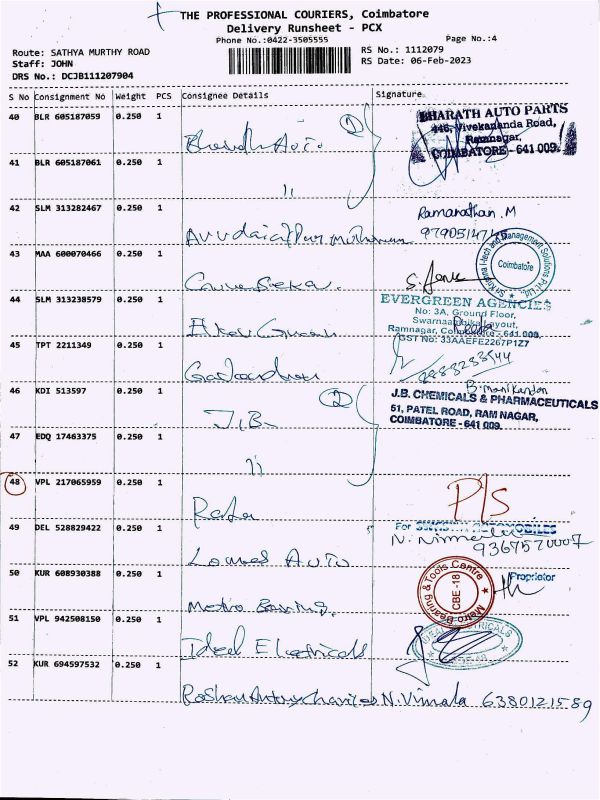 THE PROFESSIONAL COURIERS, Coimbatore
Delivery Runsheet - PCX
Phone No.:0422-3505555
Page No.:4
Route: SATHYA MURTHY ROAD
Staff: JOHN
DRS No.: DCJB111207904
RS No.: 1112079
RS Date: 06-Feb-2023
S No Consignment No Weight PCS Consignee Details Signature
40 BLR 605187059 0.250 1
2
BHARATH AUTO PARTS
446, Vivekananda Road,
Ramnagar,
COIMBATORE - 641 009.
41 BLR 605187061 0.250 1
"
42 SLM 313282467 0.250 1
Ramanathan. M
43 MAA 600070466 0.250 1
Sri Krishna I-tech and Management Solutions Pvt Ltd.
Coimbatore
44 SLM 313238579 0.250 1
EVERGREEN AGENCIES
No: 3A, Ground Floor,
Layout,
Ramnagar, Coimbatore - 641 009.
GST No: 33AAEFE2267P1Z7
45 TPT 2211349 0.250 1
46 KDI 513597 0.250 1
J.B.
2
B. Manikandan
J.B. CHEMICALS & PHARMACEUTICALS
51, PATEL ROAD, RAM NAGAR,
COIMBATORE - 641 009.
47 EDQ 17463375 0.250 1
"
48 VPL 217065959 0.250 1
P/S
49 DEL 528829422 0.250 1
Auto
For AUTOMOBILES
N. Nirmala
9367570007
Proprietor
50 KUR 608930388 0.250 1
Metro Bearing.
Metro Bearing & Tools Centre
CBE -18
51 VPL 942508150 0.250 1
Ideal Electricals
52 KUR 694597532 0.250 1
N. Vimala 6380121589